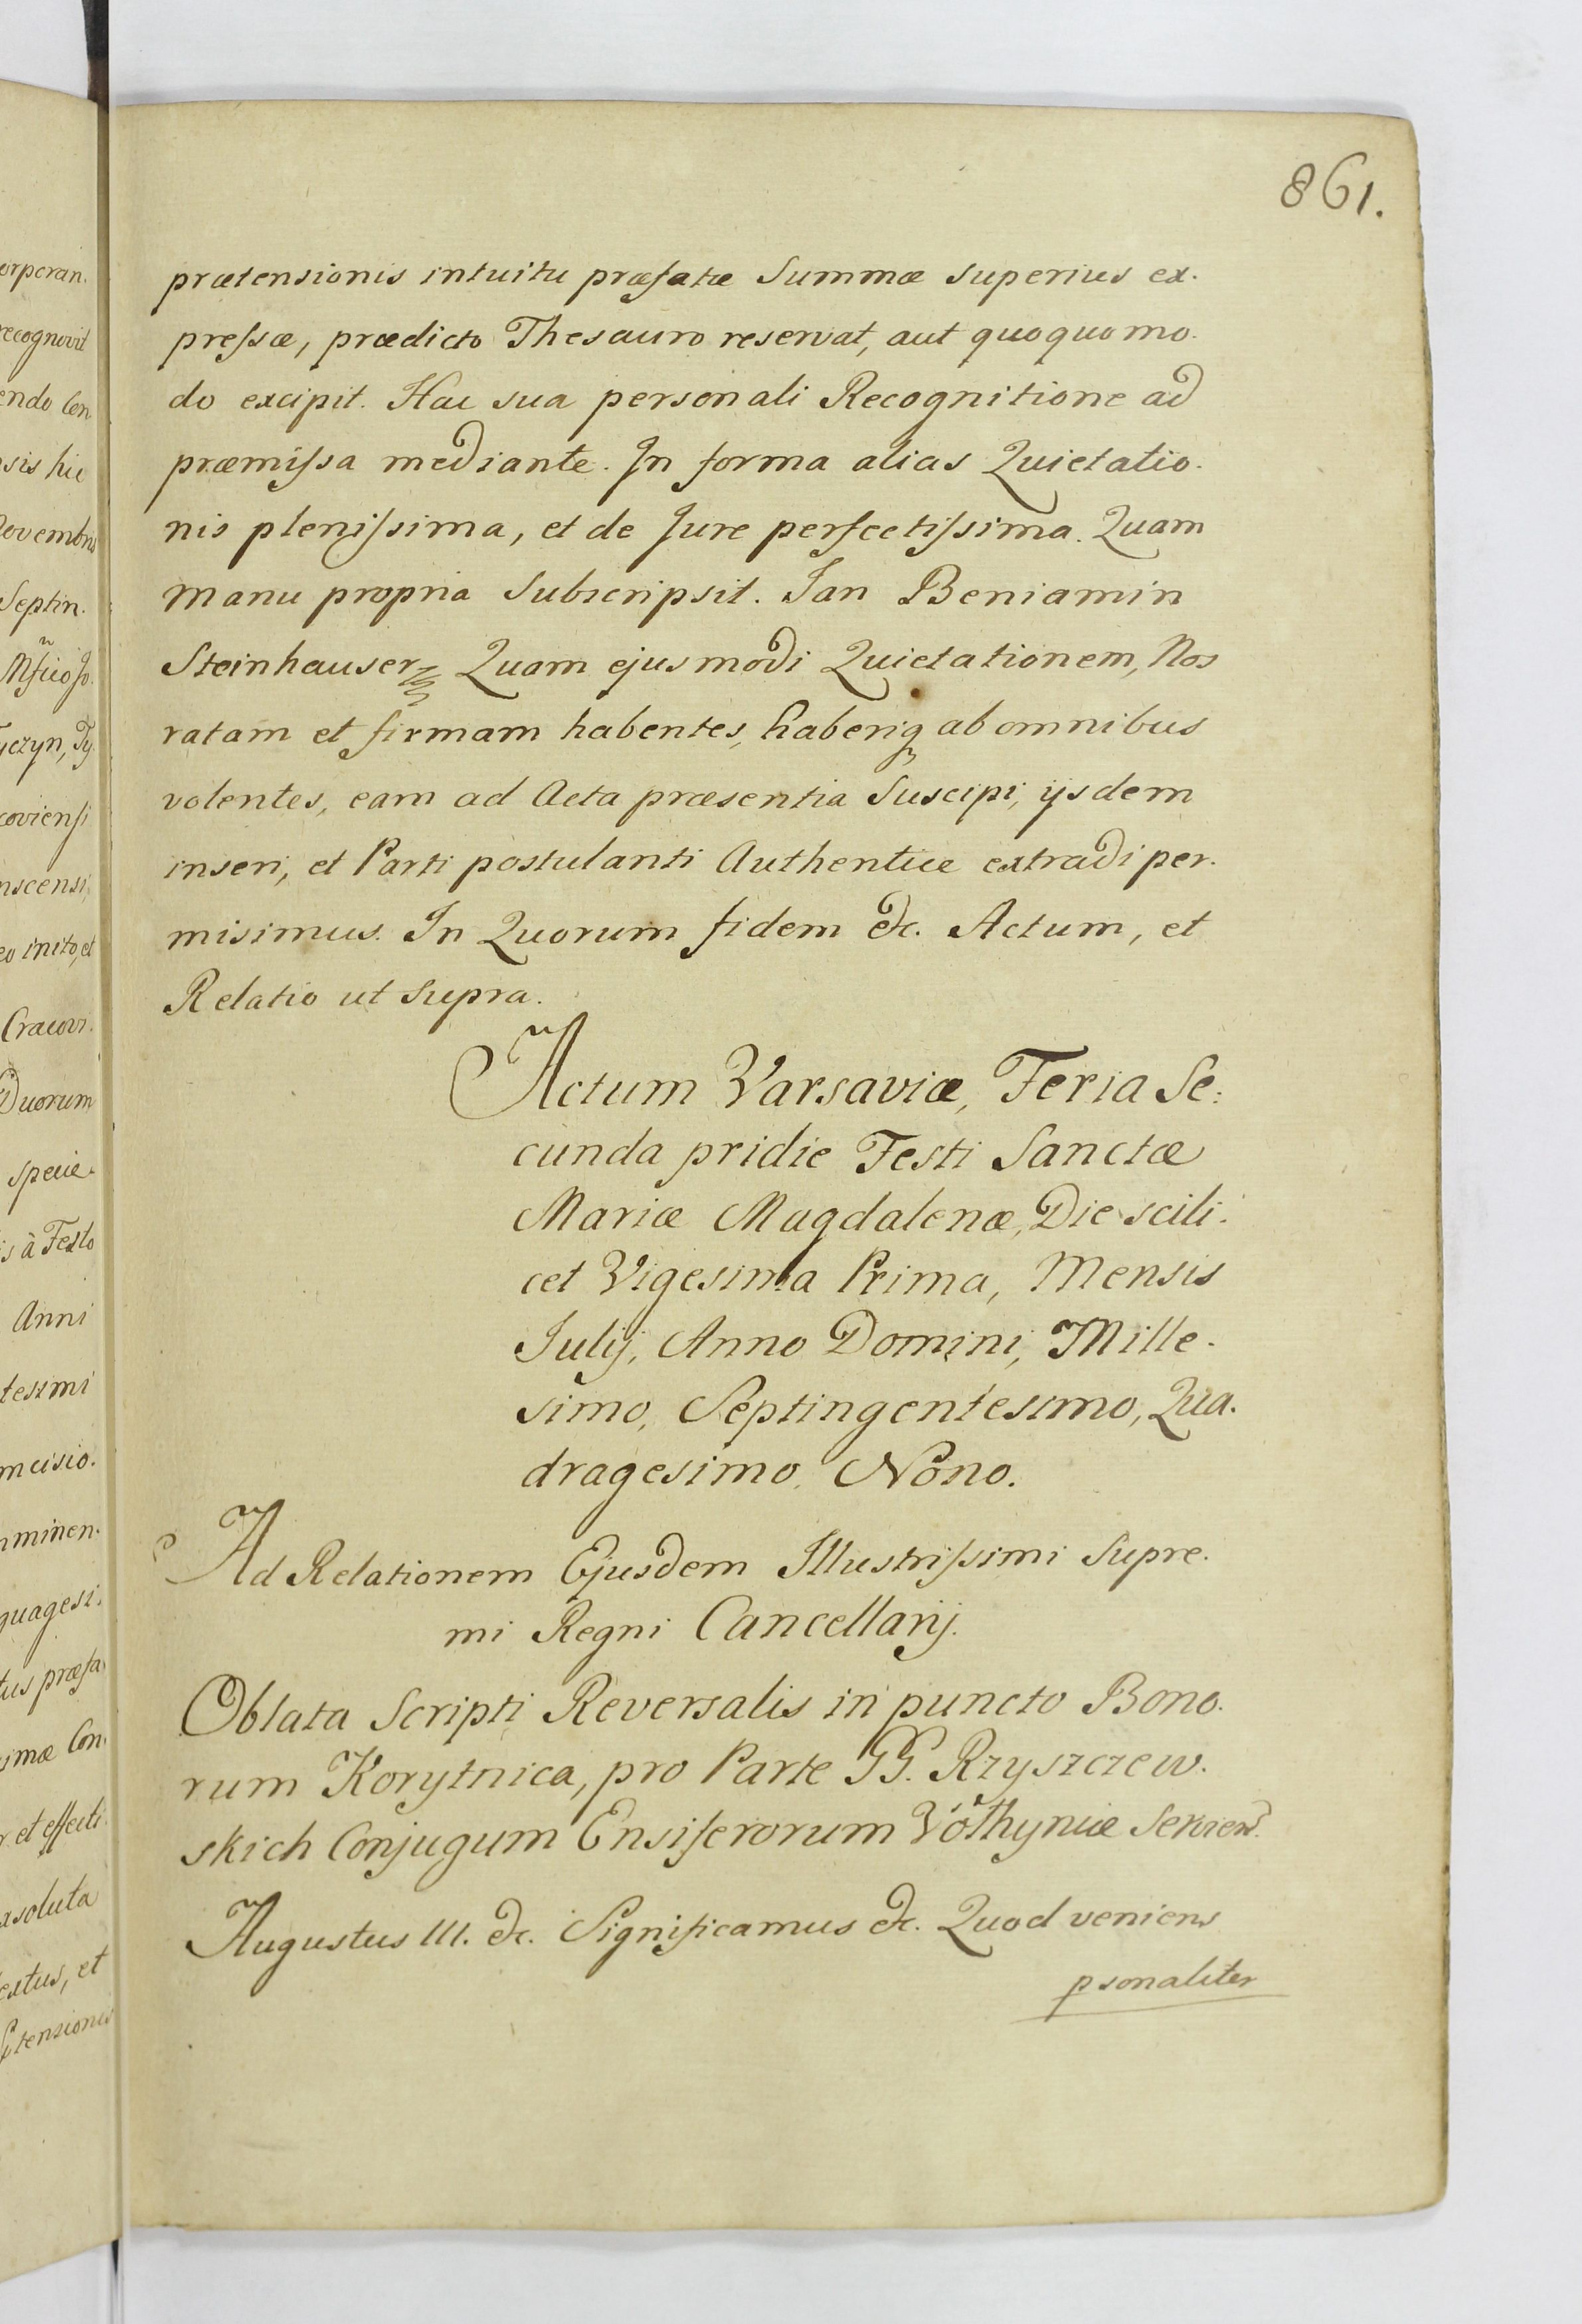 861.
prætensionis intuitu præfatæ Summæ superius ex.
preſsæ, prædicto Thesauro reservat, aut quoquomo.
do excipit. Hac sua personali Recognitione ad
præmiſsa mediante. In forma alias Quietatio.
nis pleniſsima, et de Jure perfectiſsima. Quam
manu propria Subscripsit. Jan Beniamin
Steinhauser Quam ejusmodi Quietationem, Nos
ratam et firmam habentes, haberiq ab omnibus
volentes, eam ad Acta præsentia Suscipi, ijsdem
inseri, et Parti postulanti Authentice extradi per.
misimus. In Quorum fidem &c. Actum, et
Relatio ut supra.
Actum Varsaviæ, Feria Se:
cunda pridie Festi Sanctæ
Mariæ Magdalenæ, Die scili.
cet Vigesima Prima, Mensis
Julij, Anno Domini, Mille.
simo, Septingentesimo, Qua.
dragesimo Nono.
Ad Relationem Ejusdem Illustriſsimi Supre.
mi Regni Cancellarij.
Oblata Scripti Reversalis in puncto Bono.
rum Korytnica, pro Parte GG. Rzyszczew.
skich Conjugum Ensiferorum Volhyniæ Servien.
Augustus III. &c. Significamus &c. Quod veniens
psonaliter
orporan.
recognovit
endo Con
sis hic
Novembris
Septin.
coviensi
nscensi,
eo inito, et
Cracovi.
Duorum
specie
is à Festo
Anni
tesimi
mcisio.
mminen.
quagesi.
tus præfa,
simæ Con,
r et effecti
xsoluta
extus, et
ptensionis